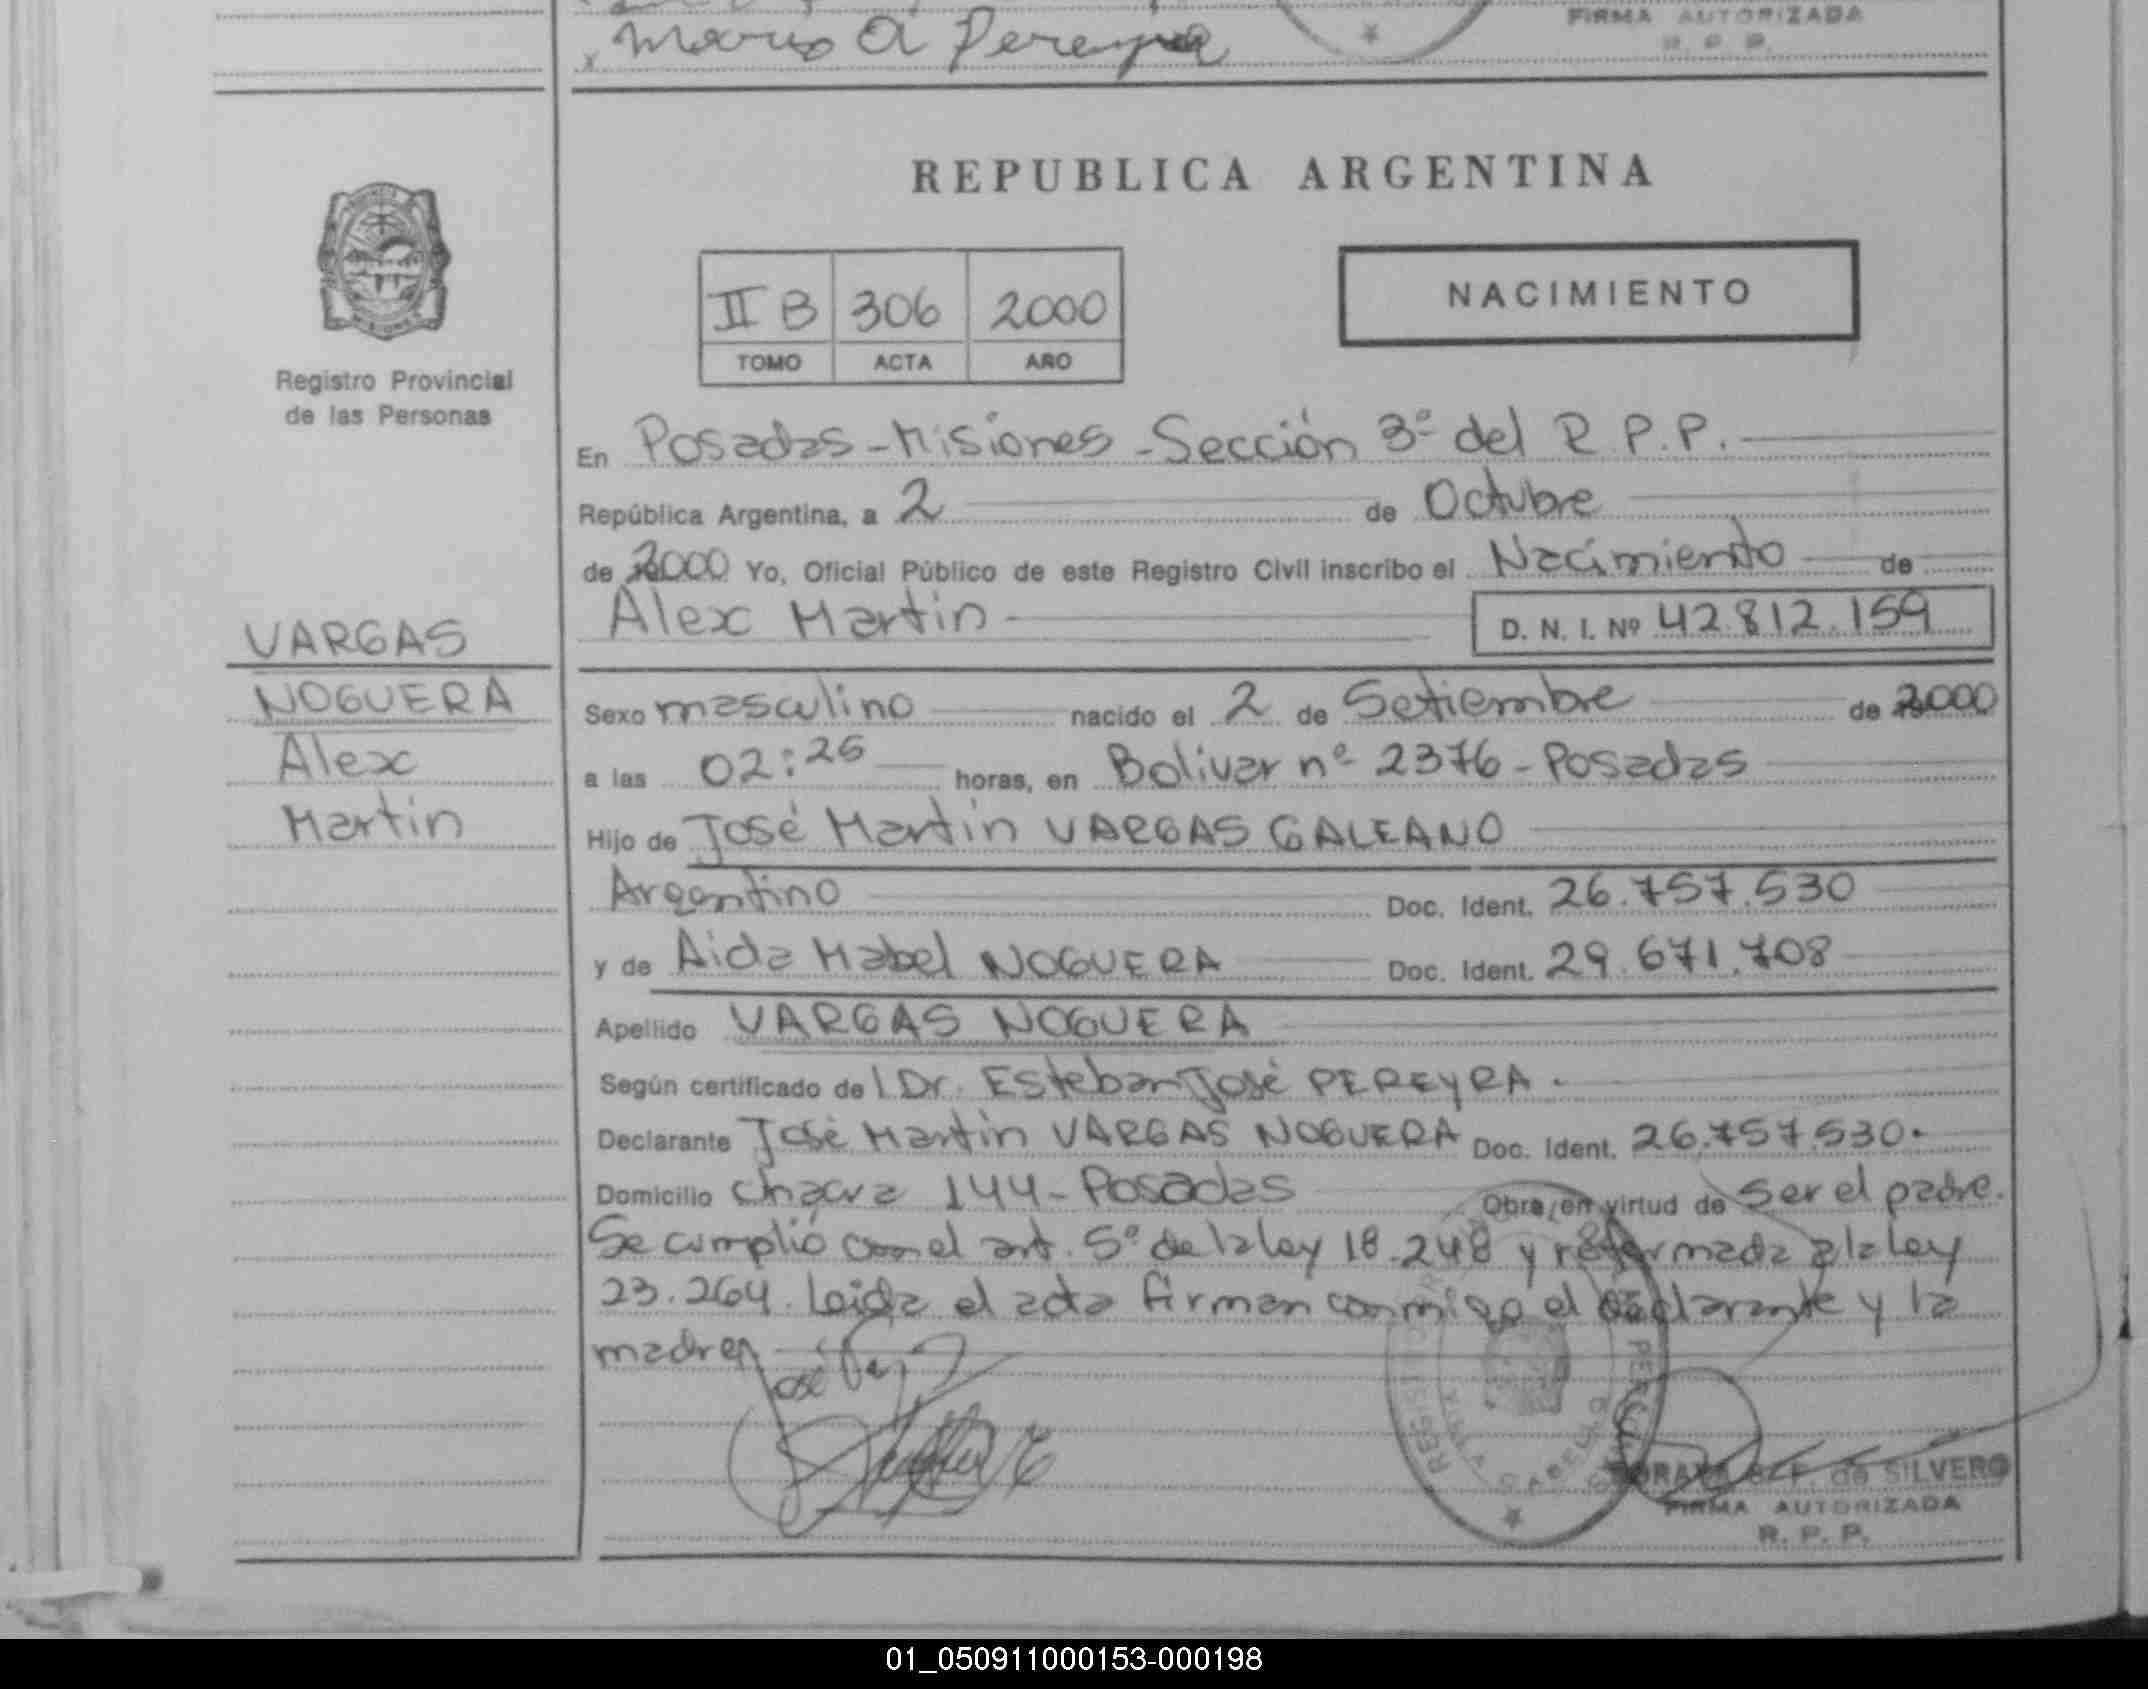 Mario A Pereyra
FIRMA AUTORIZADA
R. P. P.
REPUBLICA ARGENTINA
II B 306 2000
TOMO ACTA AÑO
NACIMIENTO
Registro Provincial
de las Personas
En Posadas - Misiones - Sección 3ª del R.P.P.
República Argentina, a 2 de Octubre
de 2000 Yo, Oficial Público de este Registro Civil inscribo el Nacimiento de
Alex Martin D. N. I. Nº 42.812.159
VARGAS
NOGUERA
Alex
Martin
Sexo masculino nacido el 2 de Setiembre de 2000
a las 02:25 horas, en Bolivar nº 2376 - Posadas
Hijo de José Martin VARGAS GALEANO
Argentino Doc. Ident. 26.757.530
y de Aida Mabel NOGUERA Doc. Ident. 29.671.708
Apellido VARGAS NOGUERA
Según certificado de l Dr. Esteban José PEREYRA.
Declarante José Martin VARGAS NOGUERA Doc. Ident. 26.757.530.
Domicilio chacra 144 - Posadas Obra, en virtud de ser el padre.
Se cumplió con el art. 5º de la ley 18.248 y reformada a la ley
23.264. Leida el acta firman conmigo el declarante y la
madre
José
REGISTRO
de SILVERO
FIRMA AUTORIZADA
R. P. P.
01_050911000153-000198